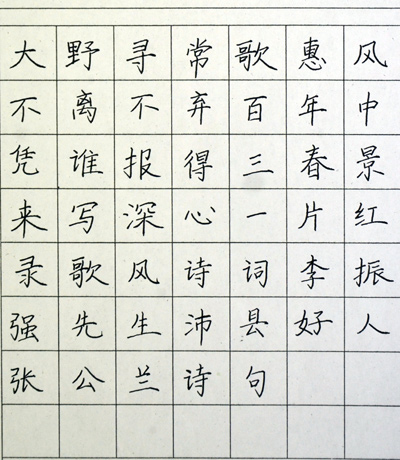 大野寻常歌惠风
不离不弃百年中
凭谁报得三春景
来写深心一片红
录歌风诗词李振
强先生沛县好人
张公兰诗句